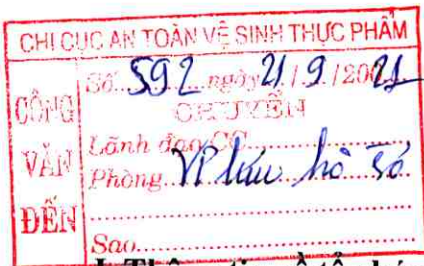 CHI CỤC AN TOÀN VỆ SINH THỰC PHẨM
CÔNG VĂN ĐẾN
Số 592 ngày 21/9/2021
CHUYỂN
Lãnh đạo CC
Phòng VP lưu hồ sơ
Sao
I. Thông tin về tổ